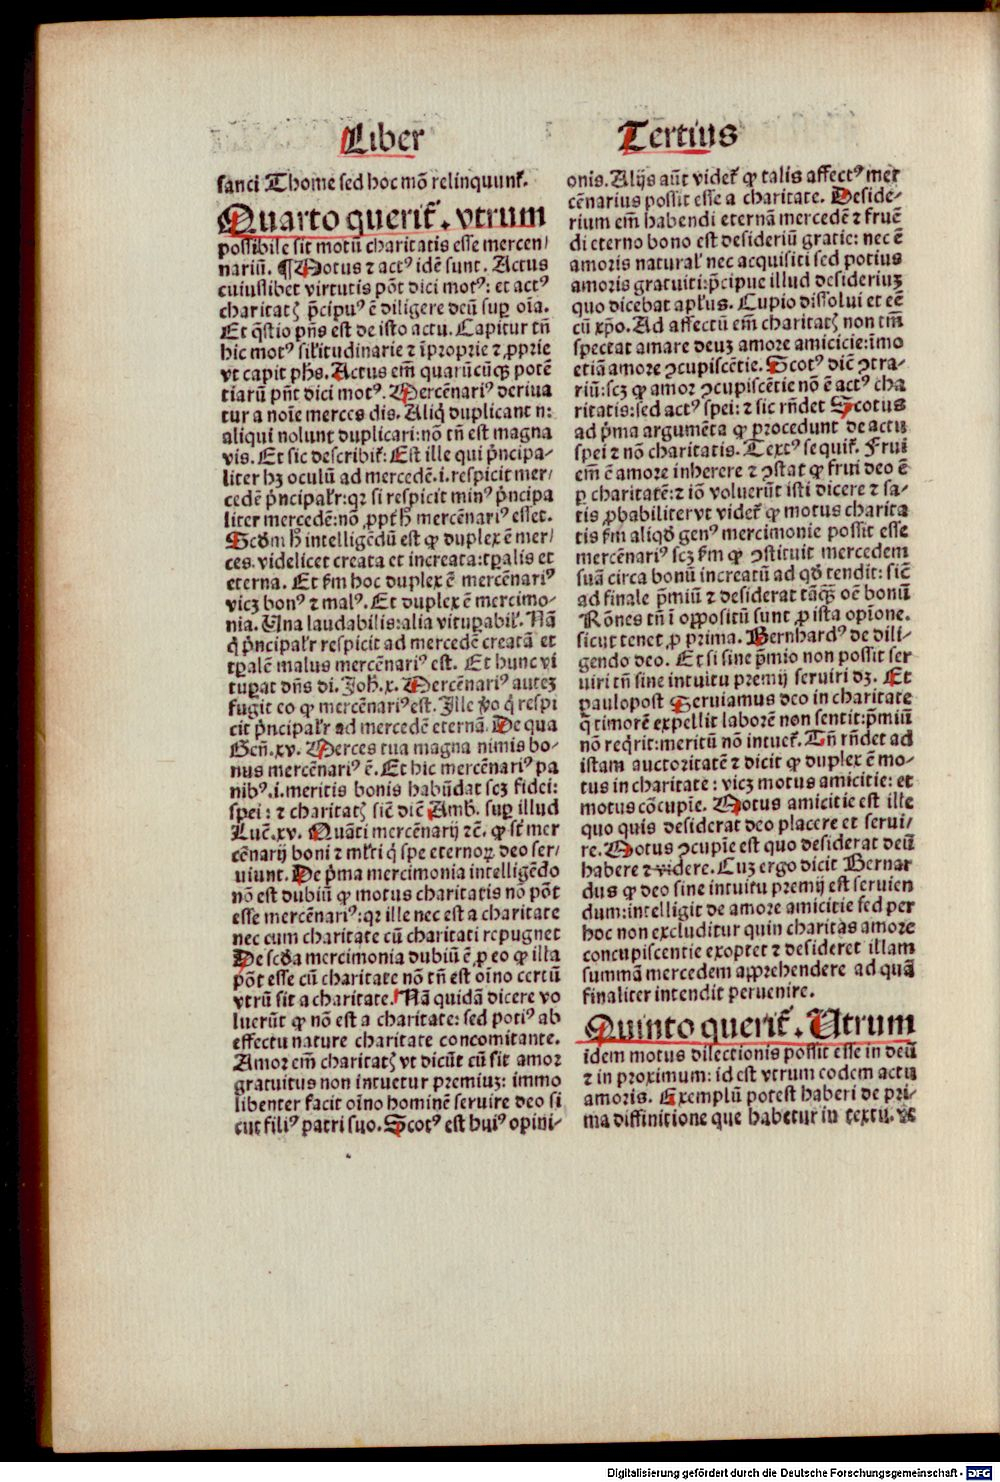 Liber Tertius
sanci Thome sed hoc mō relinquunt᷑.
Quarto querit᷑. vtrum
possibile sit motū charitatis esse mercen/
nariū. ¶ Motus ⁊ actꝰ idē sunt. Actus
cuiuslibet virtutis pōt dici motꝰ: et actꝰ
charitatꝭ p̄cipuꝰ ē diligere deū suꝑ oīa.
Et q̄stio pn̄s est de isto actu. Capitur tn̄
hic motꝰ sil'itudinarie ⁊ īproprie ⁊ ꝓprie
vt capit ph̄s. Actus em̄ quarūcūqꝫ potē
tiarū pn̄t dici motꝰ. Mercēnariꝰ deriua
tur a noīe merces dis. Aliq̇ duplicant n:
aliqui nolunt duplicari: nō tn̄ est magna
vis. Et sic describit᷑: Est ille qui pn̄cipa-
liter hꝫ oculū ad mercedē.i. respicit mer/
cedē pn̄cipal'r: qꝛ si respicit minꝰ pn̄cipa
liter mercedē: nō ꝓpt' h̄ mercēnariꝰ esset.
Scd̄m h̄ intelligēdū est ꝙ duplex ē mer/
ces. videlicet creata et increata: tꝑalis et
eterna. Et ẜm hoc duplex ē mercēnariꝰ
vicꝫ bonꝰ ⁊ malꝰ. Et duplex ē mercimo-
nia. Una laudabilis: alia vituꝑabil'. Nā
q̇ pn̄cipal'r respicit ad mercedē creatā et
tꝑalē malus mercēnariꝰ est. Et hunc vi
tuꝑat dn̄s di. Joh̄. x. Mercēnariꝰ auteꝫ
fugit eo ꝙ mercēnariꝰ est. Ille v̄o q̇ respi
cit pn̄cipal'r ad mercedē eternā. De qua
Gen̄. xv. Merces tua magna nimis bo-
nus mercēnariꝰ ē. Et hic mercēnariꝰ pa
nibꝰ.i. meritis bonis habūdat scꝫ fidei:
spei: ⁊ charitatꝭ sic̄ dic̄ Amb. suꝑ illud
Luc̄. xv. Quāti mercēnarij ⁊c̄. ꝙ st̄ mer
cēnarij boni ⁊ ml'ti q̇ spe eternoꝝ deo ser/
uiunt. De p̄ma mercimonia intelligēdo
nō est dubiū ꝙ motus charitatis nō pōt
esse mercēnariꝰ: qꝛ ille nec est a charitate
nec cum charitate cū charitati repugnet
De scd̄a mercimonia dubiū ē ꝓ eo ꝙ illa
pōt esse cū charitate nō tn̄ est oīno certū
vtrū sit a charitate. Nā quidā dicere vo
luerūt ꝙ nō est a charitate: sed potiꝰ ab
effectu nature charitate concomitante.
Amor em̄ charitatꝭ vt dicūt cū sit amor
gratuitus non intuetur premiuꝫ: immo
libenter facit oīno hominē seruire deo si
cut filiꝰ patri suo. Scotꝰ est huiꝰ opini-
onis. Alijs aūt videt᷑ ꝙ talis affectꝰ mer
cēnarius possit esse a charitate. Deside-
rium em̄ habendi eternā mercedē ⁊ fruē
di eterno bono est desideriū gratie: nec ē
amoris natural' nec acquisiti sed potius
amoris gratuiti: p̄cipue illud desideriuꝫ
quo dicebat apl'us. Cupio dissolui et eē
cū xp̄o. Ad affectū em̄ charitatꝭ non tm̄
spectat amare deuꝫ amore amicicie: īmo
etiā amore ꝯcupiscētie. Scotꝰ dic̄ ꝯtra-
riū: scꝫ ꝙ amor ꝯcupiscētie nō ē actꝰ cha
ritatis: sed actꝰ spei: ⁊ sic rn̄det Scotus
ad p̄ma argumēta ꝙ procedunt de actu
spei ⁊ nō charitatis. Textꝰ sequit᷑. Frui
em̄ ē amore inherere ⁊ ꝯstat ꝙ frui deo ē
ꝑ charitatē: ⁊ iō voluerūt isti dicere ⁊ sa-
tis ꝓbabiliter vt videt᷑ ꝙ motus charita
tis ẜm aliqd̄ genꝰ mercimonie possit esse
mercēnariꝰ scꝫ ẜm ꝙ ꝯstituit mercedem
suā circa bonū increatū ad qd̄ tendit: sic̄
ad finale p̄miū ⁊ desiderat tāqꝫ oē bonū
Rōnes tn̄ ī oppositū sunt ꝓ ista opīone.
sicut tenet ꝓ prima. Bernhardꝰ de dili-
gendo deo. Et si sine p̄mio non possit ser
uiri tn̄ sine intuitu premij seruiri dꝫ. Et
paulopost Seruiamus deo in charitate
q̄ timorē expellit laborē non sentit: p̄miū
nō req̇rit: meritū nō intuet᷑. Tn̄ rn̄det ad
istam auctoritatē ⁊ dicit ꝙ duplex ē mo-
tus in charitate: vicꝫ motus amicitie: et
motus cōcupīe. Motus amicitie est ille
quo quis desiderat deo placere et serui/
re. Motus ꝯcupīe est quo desiderat deū
habere ⁊ videre. Cuꝫ ergo dicit Bernar
dus ꝙ deo sine intuitu premij est seruien
dum: intelligit de amore amicitie sed per
hoc non excluditur quin charitas amore
concupiscentie exoptet ⁊ desideret illam
summā mercedem apprehendere ad quā
finaliter intendit peruenire.
Quinto querit᷑. Utrum
idem motus dilectionis possit esse in deū
⁊ in proximum: id est vtrum eodem actu
amoris. Exemplū potest haberi de pri-
ma diffinitione que habetur in textu. vꝫ
Digitalisierung gefördert durch die Deutsche Forschungsgemeinschaft - DFG